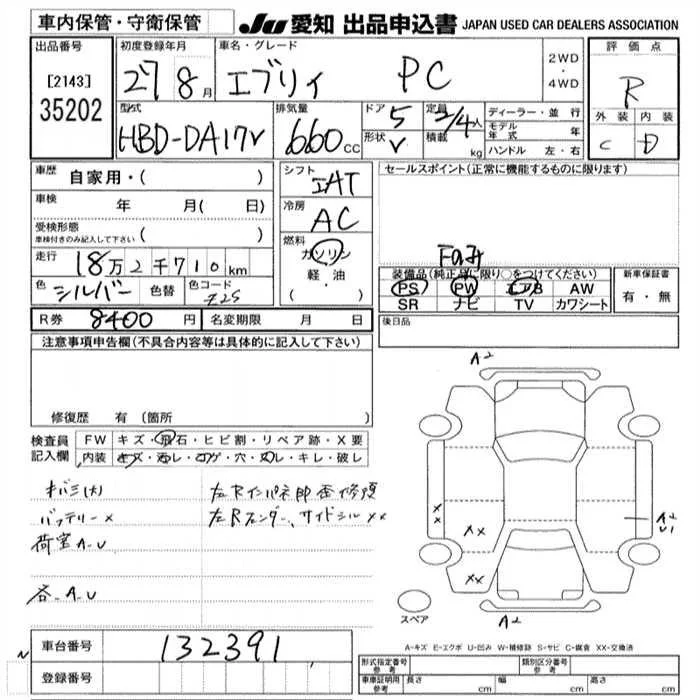 車内保管・守衛保管
JU 愛知 出品申込書 JAPAN USED CAR DEALERS ASSOCIATION
出品番号
[2143]
35202
初度登録年月
27 8月
車名・グレード
エブリィ PC
2WD
・
4WD
評価点
R
外装 内装
C D
型式
HBD-DA17V
排気量
660cc
ドア 5
形状 V
定員 2/4人
積載 kg
ディーラー・並行
モデル年式 年
ハンドル 左・右
車歴 自家用・( )
車検 年 月( 日)
受検形態
車検付きのみ記入して下さい ( )
走行 18万2千710km
色 シルバー 色替 色コード Z2S
シフト
IAT
冷房
AC
燃料
ガソリン
軽・油
・( )
セールスポイント(正常に機能するものに限ります)
装備品(純正品に限り○をつけてください)
PS PW エアB AW
SR ナビ TV カワシート
新車保証書
有・無
R券 8400円 名変期限 月 日
後日品
注意事項申告欄(不具合内容等は具体的に記入して下さい)
修復歴 有(箇所
検査員記入欄
FW キズ・飛石・ヒビ割・リペア跡・X要
内装 キズ・汚レ・コゲ・穴・スレ・キレ・破レ
バッテリー×
荷室A.U
各_A.U
左Rインパネ部歪修復
左Rフェンダー、サイドシルXX
A2
XX
XX
XX
A2
U1
A2
スペア
A-キズ E-エクボ U-凹み W-補修跡 S-サビ C-腐食 XX-交換済
車台番号 132391
登録番号
型式指定番号 参考
類別区分番号 参考
車庫証明用 参考 長さ cm 幅 cm 高さ cm